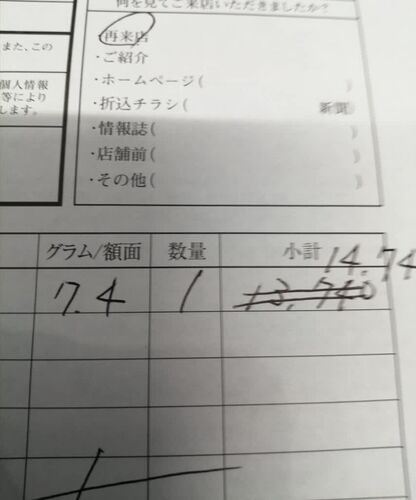 何を見てご来店いただきましたか?
・再来店
・ご紹介
・ホームページ( )
・折込チラシ( 新聞)
・情報誌( )
・店舗前( )
・その他( )
また、この
個人情報
等により
します。
グラム/額面 数量 小計
14.74
7.4 1 13,740